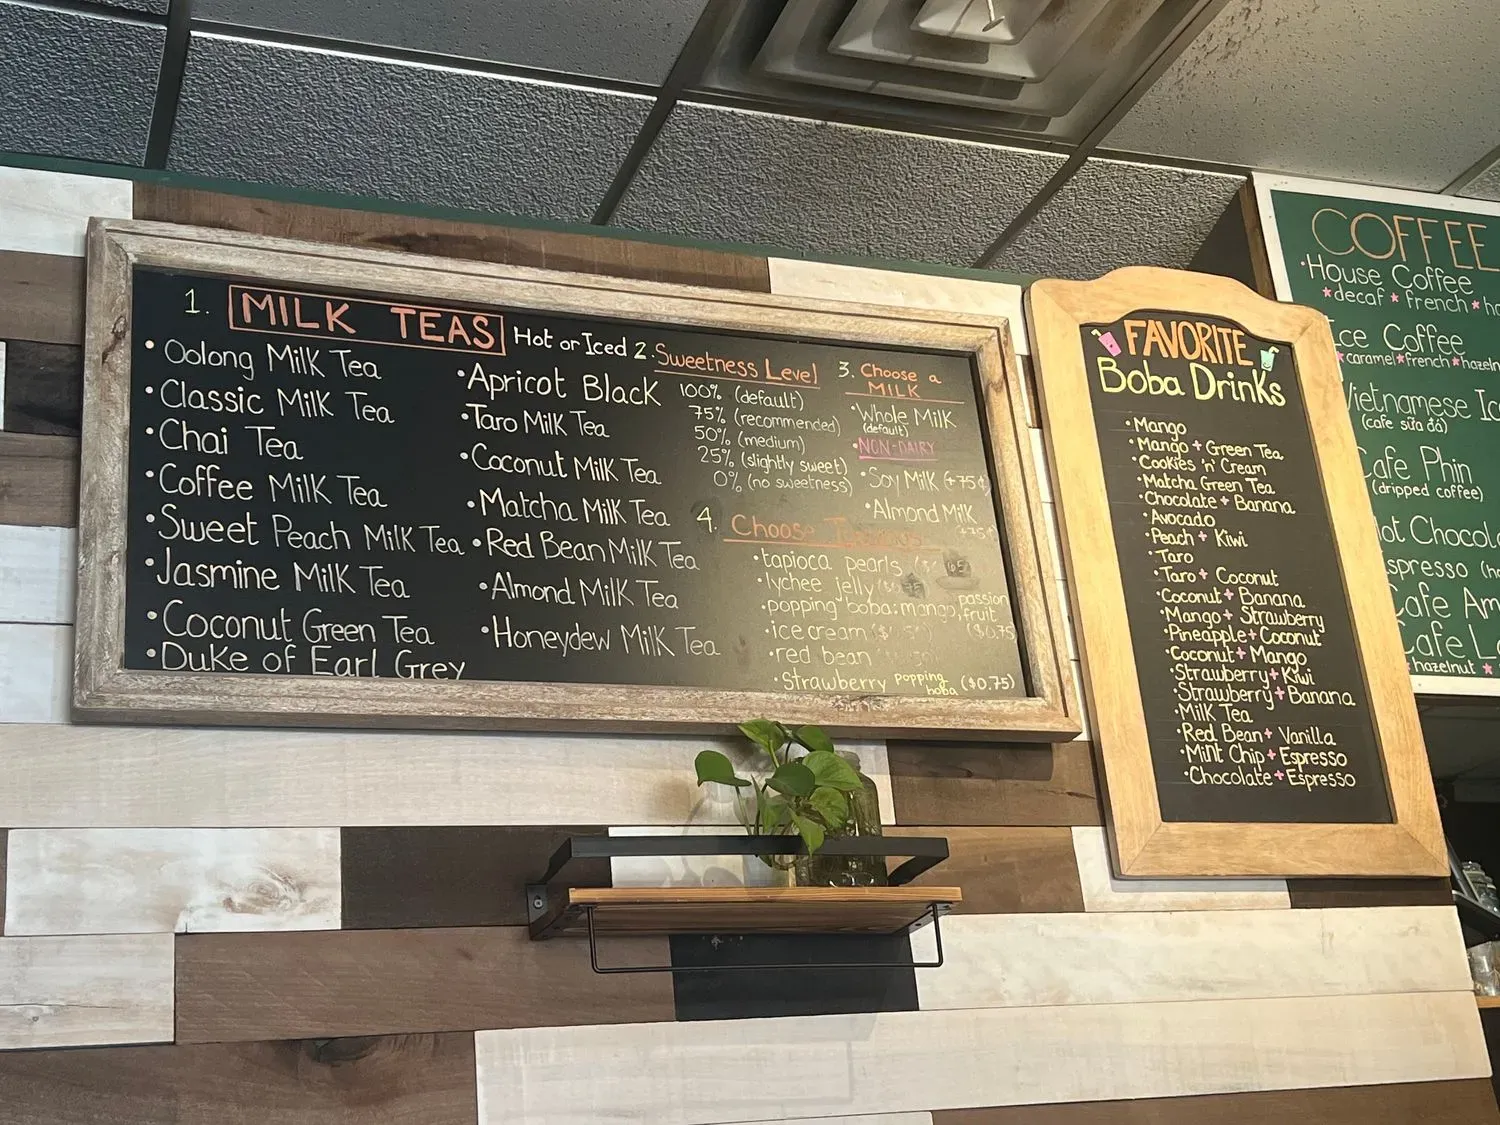 1. MILK TEAS Hot or Iced
• Oolong Milk Tea
• Classic Milk Tea
• Chai Tea
• Coffee Milk Tea
• Sweet Peach Milk Tea
• Jasmine Milk Tea
• Coconut Green Tea
• Duke of Earl Grey
• Apricot Black
• Taro Milk Tea
• Coconut Milk Tea
• Matcha Milk Tea
• Red Bean Milk Tea
• Almond Milk Tea
• Honeydew Milk Tea
2. Sweetness Level
100% (default)
75% (recommended)
50% (medium)
25% (slightly sweet)
0% (no sweetness)
3. Choose a
MILK
• Whole Milk
(default)
• NON-DAIRY
• Soy Milk (+75¢)
• Almond Milk
+75¢
4. Choose
• tapioca pearls
• lychee jelly
• popping boba: mango, passion
fruit
($0.75)
• ice cream
• red bean
• Strawberry popping
boba ($0.75)
FAVORITE
Boba Drinks
• Mango
• Mango + Green Tea
• Cookies 'n' Cream
• Matcha Green Tea
• Chocolate + Banana
• Avocado
• Peach + Kiwi
• Taro
• Taro + Coconut
• Coconut + Banana
• Mango + Strawberry
• Pineapple + Coconut
• Coconut + Mango
• Strawberry + Kiwi
• Strawberry + Banana
• Milk Tea
• Red Bean + Vanilla
• Mint Chip + Espresso
• Chocolate + Espresso
COFFEE
• House Coffee
decaf french
Ice Coffee
caramel french hazeln
Vietnamese Ic
(cafe sữa đá)
Cafe Phin
(dripped coffee)
ot Chocol
spresso (h
Cafe Am
Cafe L
hazelnut